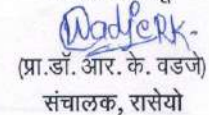 (प्रा.डॉ. आर. के. वडजे)
संचालक, रासेयो